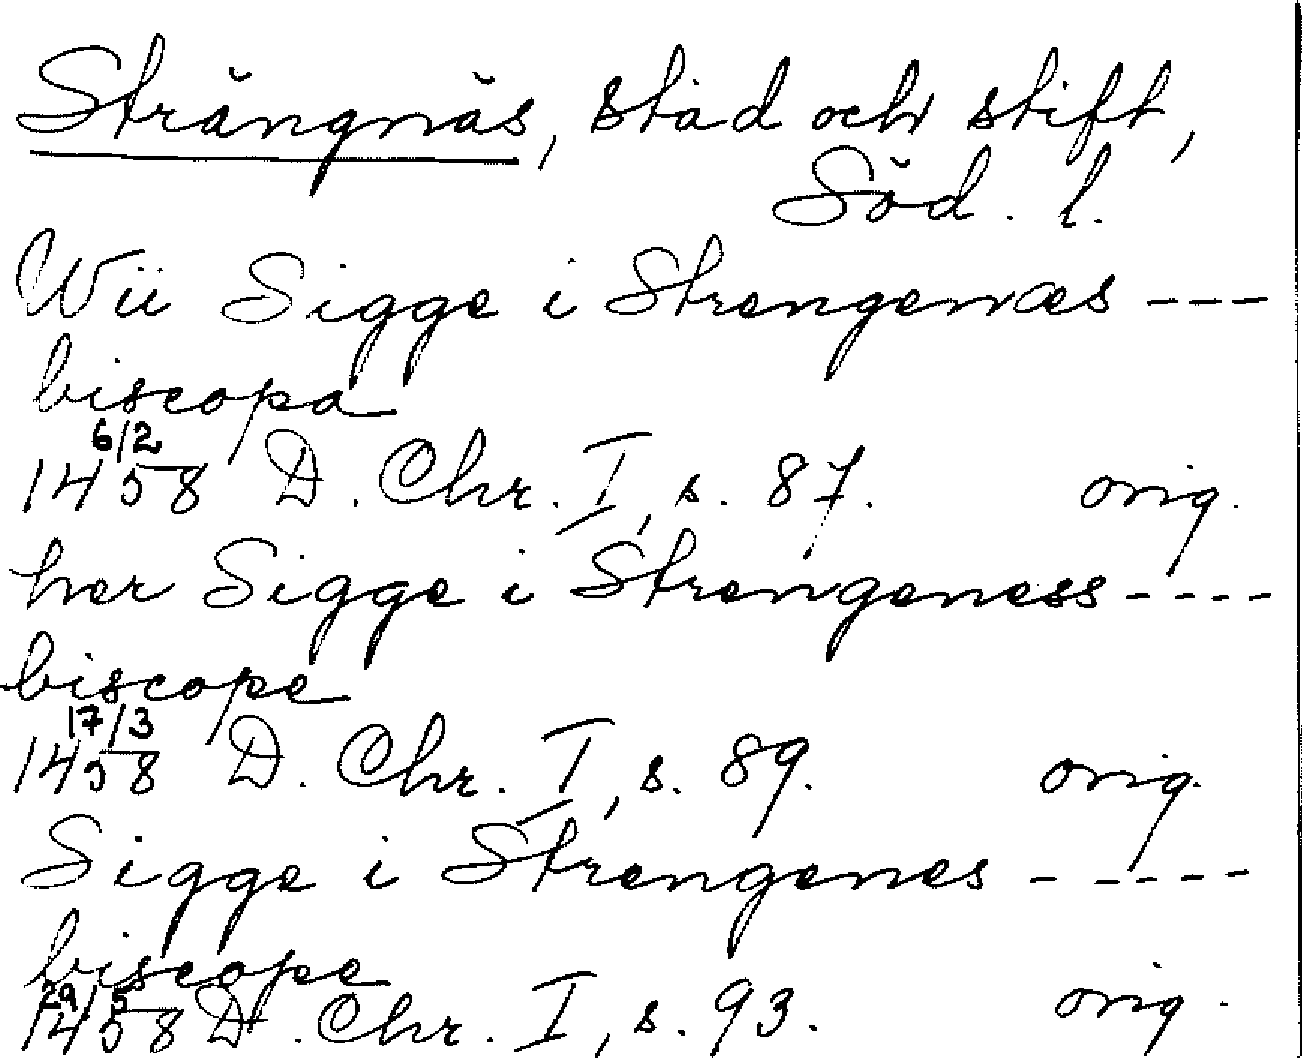 Strängnäs, stad och stift,
Söd. l.
Wii Sigge i Strengenæs ---
biscopa
6/2
1458 D. Chr. I, s. 87. orig.
her Sigge i Strengeness ----
biscope
17/3
1458 D. Chr. I, s. 89. orig.
Sigge i Strengenes -----
biscope
29/5
1458 D. Chr. I, s. 93. orig.